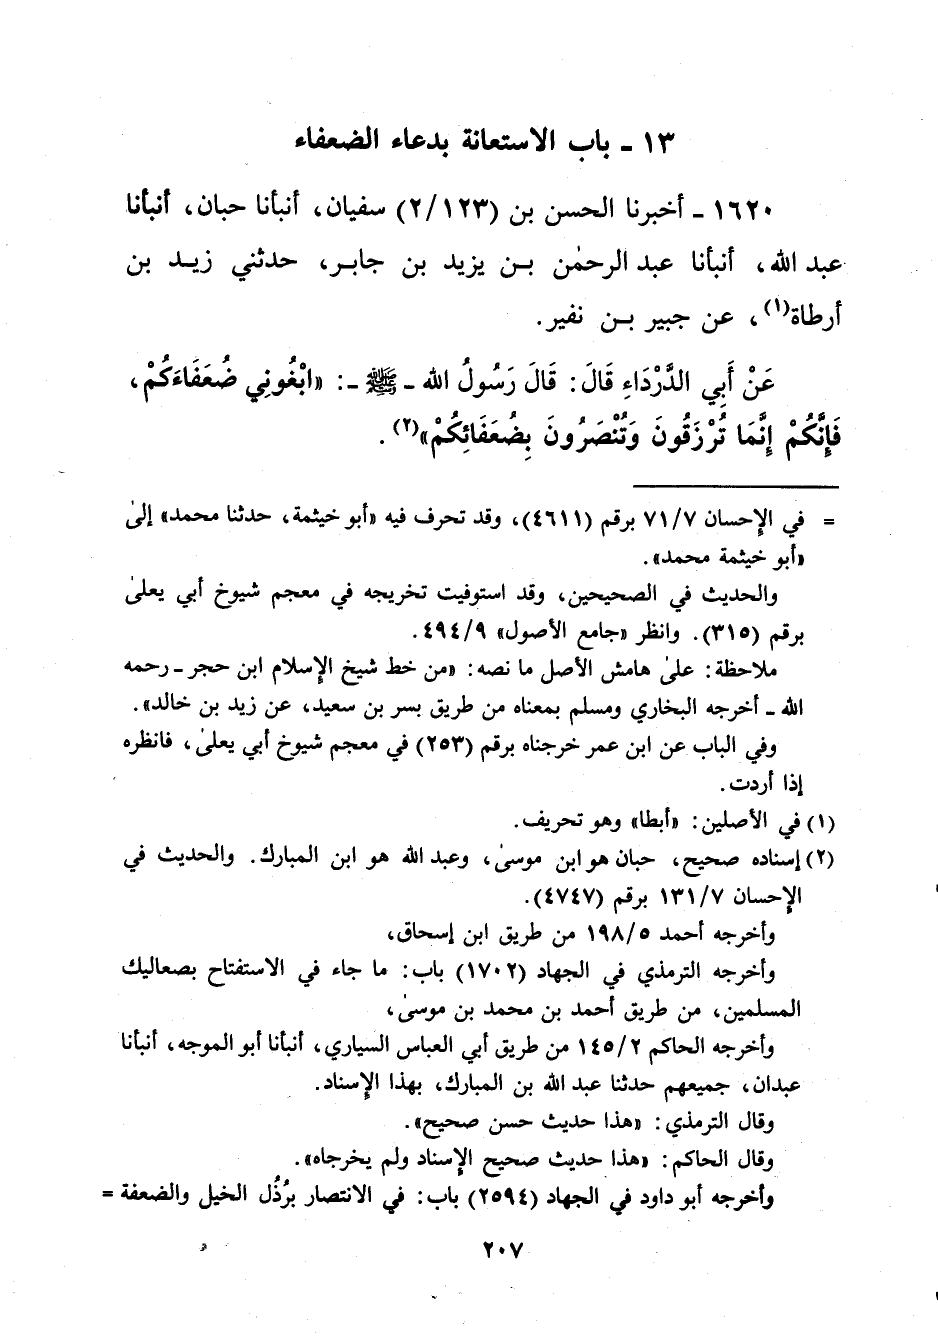 ١٣ ـ باب الاستعانة بدعاء الضعفاء
١٦٢٠ ـ أخبرنا الحسن بن (٢/١٢٣) سفيان، أنبأنا حبان، أنبأنا
عبد الله، أنبأنا عبد الرحمٰن بن يزيد بن جابر، حدثني زيد بن
أرطاة(١)، عن جبير بن نفير.
عَنْ أَبِي الدَّرْدَاءِ قَالَ: قَالَ رَسُولُ الله ـ ﷺ ـ: «ابْغُونِي ضُعَفَاءَكُمْ،
فَإِنَّكُمْ إِنَّمَا تُرْزَقُونَ وَتُنْصَرُونَ بِضُعَفَائِكُمْ»(٢).
= في الإحسان ٧١/٧ برقم (٤٦١١)، وقد تحرف فيه «أبو خيثمة، حدثنا محمد» إلىٰ
«أبو خيثمة محمد».
والحديث في الصحيحين، وقد استوفيت تخريجه في معجم شيوخ أبي يعلىٰ
برقم (٣١٥). وانظر «جامع الأصول» ٤٩٤/٩.
ملاحظة: علىٰ هامش الأصل ما نصه: «من خط شيخ الإسلام ابن حجر ـ رحمه
الله ـ أخرجه البخاري ومسلم بمعناه من طريق بسر بن سعيد، عن زيد بن خالد».
وفي الباب عن ابن عمر خرجناه برقم (٢٥٣) في معجم شيوخ أبي يعلىٰ، فانظره
إذا أردت.
(١) في الأصلين: «أبطا» وهو تحريف.
(٢) إسناده صحيح، حبان هو ابن موسىٰ، وعبد الله هو ابن المبارك. والحديث في
الإحسان ١٣١/٧ برقم (٤٧٤٧).
وأخرجه أحمد ١٩٨/٥ من طريق ابن إسحاق،
وأخرجه الترمذي في الجهاد (١٧٠٢) باب: ما جاء في الاستفتاح بصعاليك
المسلمين، من طريق أحمد بن محمد بن موسىٰ،
وأخرجه الحاكم ١٤٥/٢ من طريق أبي العباس السياري، أنبأنا أبو الموجه، أنبأنا
عبدان، جميعهم حدثنا عبد الله بن المبارك، بهذا الإسناد.
وقال الترمذي: «هذا حديث حسن صحيح».
وقال الحاكم: «هذا حديث صحيح الإسناد ولم يخرجاه».
وأخرجه أبو داود في الجهاد (٢٥٩٤) باب: في الانتصار بِرُذُل الخيل والضعفة =
٢٠٧